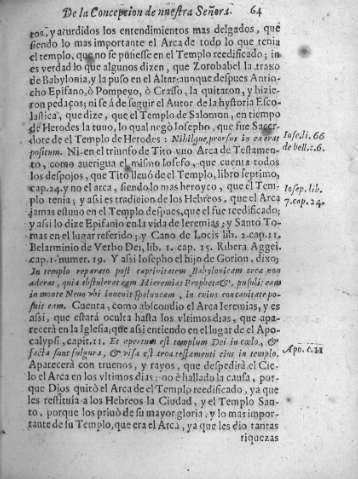 De la Concepcion de nuestra Señora. 64
ros, y aturdidos los entendimientos mas delgados, que
siendo lo mas importante el Arca de todo lo que tenia
el templo, que no se pusiesse en el Templo reedificado; ni
es verdad lo que algunos dizen, que Zorobabel la traxo
de Babylonia, y la puso en el Altar aunque despues Antio-
cho Epifano, ò Pompeyo, ò Crasso, la quitaron, y hizie-
ron pedaços; ni se à de seguir el Autor de la hystoria Esco-
lastica, que dize, que el Templo de Salomon, en tiempo
de Herodes la tuuo, lo qual negò Iosepho, que fue Sacer-
dote de el Templo de Herodes: Nihilque prorsus in eo erat
positum. Ni en el triunfo de Tito vuo Arca de Testamen-
to, como auerigua el mismo Iosefo, que cuenta todos
los despojos, que Tito lleuò de el Templo, libro septimo,
cap. 24. y no el arca, siendo lo mas heroyco, que el Tem-
plo tenia; y assi es tradicion de los Hebreos, que el Arca
jamas estuuo en el Templo despues, que el fue reedificado;
y assi lo dize Epifanio en la vida de Ieremias; y Santo To-
mas en el lunar referido; y Cano de Locis lib. 2. cap. 11.
Belarminio de Verbo Dei, lib. 1. cap. 15. Ribera Aggei.
cap. 1. numer. 19. Y assi Iosepho el hijo de Gorion, dixo;
In templo reparato post captiuitatem Babylonicam arca non
aderat, quia abstulerat eam Hieremias Propheta &c. posuit eam
in monte Nemo vbi inuenit speluncam, in cuius concauitate po-
suit eam. Cuenta, como abscondio el Arca Ieremias, y es
assi, que estarà oculta hasta los vltimos dias, que apa-
recerà en la Iglesia, que assi entiendo en el lugar de el Apo-
calypsi, capit. 11. Et apertum est templum Dei in cœlo, &
facta sunt fulgura, & visa est arca testamenti eius in templo.
Aparecerà con truenos, y rayos, que despedirà el Cie-
lo el Arca en los vltimos dias; no è hallado la causa, por-
que Dios quitò el Arca de el Templo reedificado, ya que
les restituìa a los Hebreos la Ciudad, y el Templo San-
to, porque los priuò de su mayor gloria, y lo mas impor-
tante de su Templo, que era el Arca, ya que les dio tantas
riquezas
Iose. li. 66
de bell. c. 6.
Iosep. lib.
7. cap. 24.
Apo. c. 11